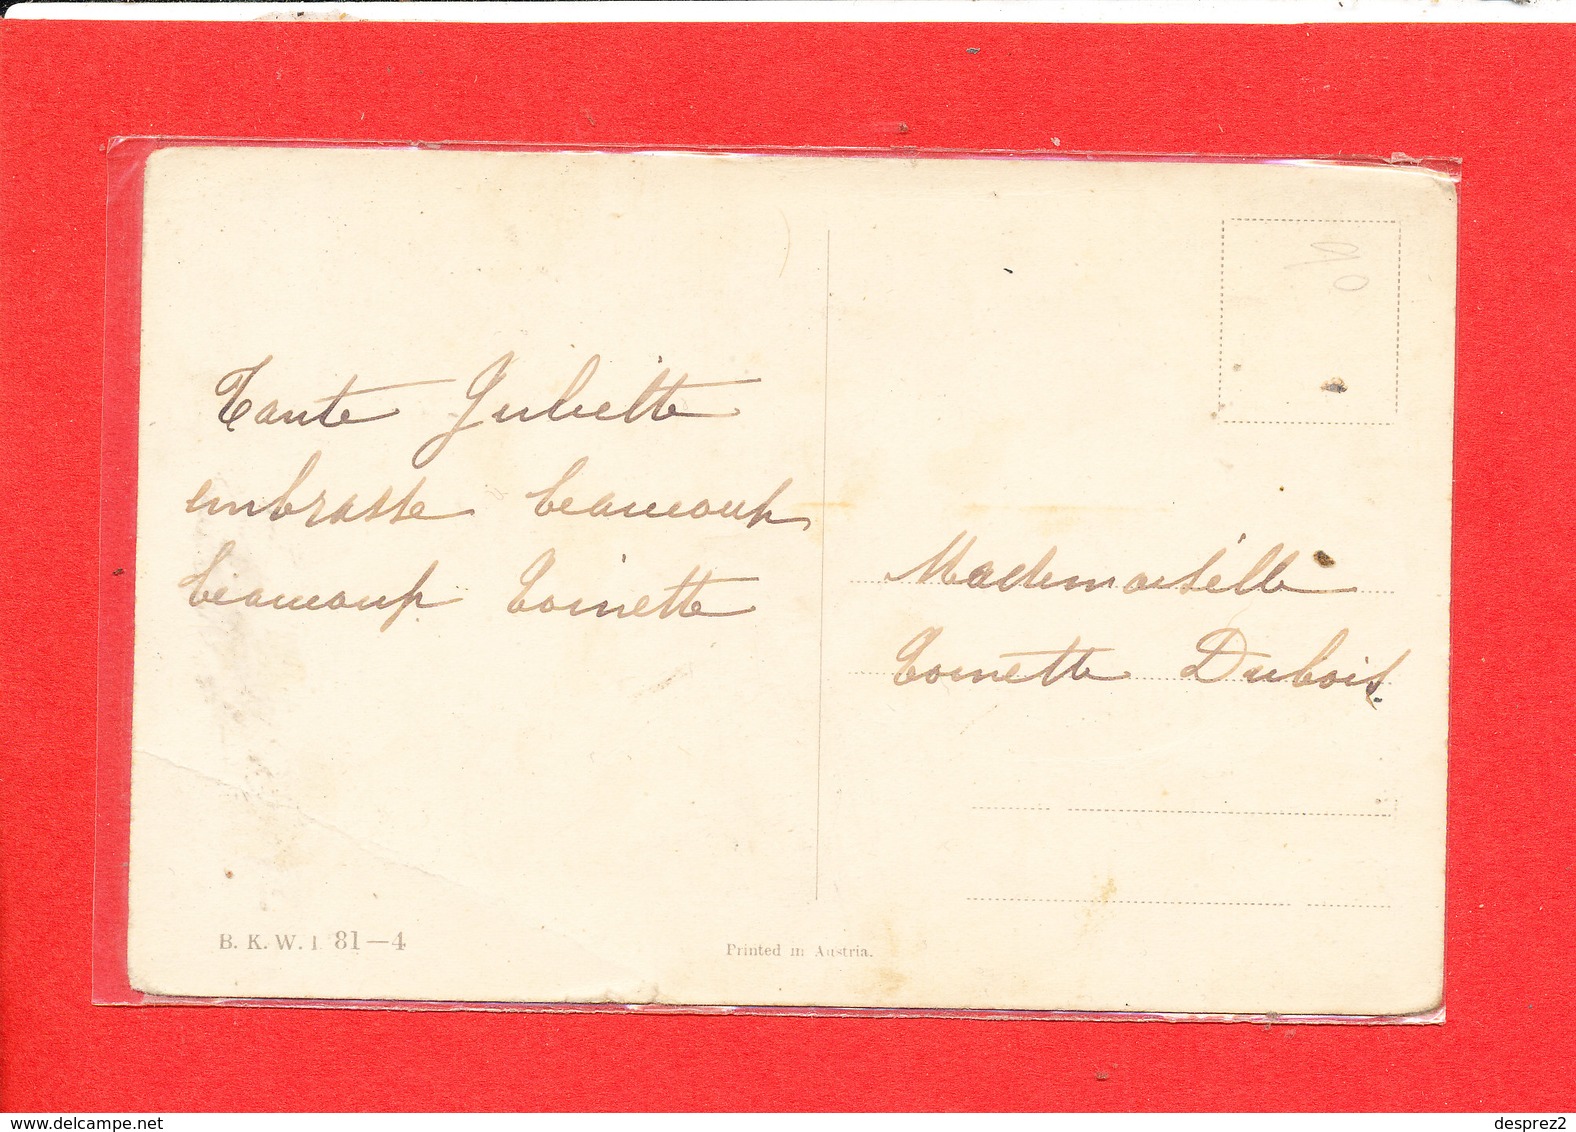 Tante Juliette
embrasse beaucoup
beaucoup Toinette
Mademoiselle
Toinette Dubois.
B. K. W. I. 81—4
Printed in Austria.
www.delcampe.net
desprez2